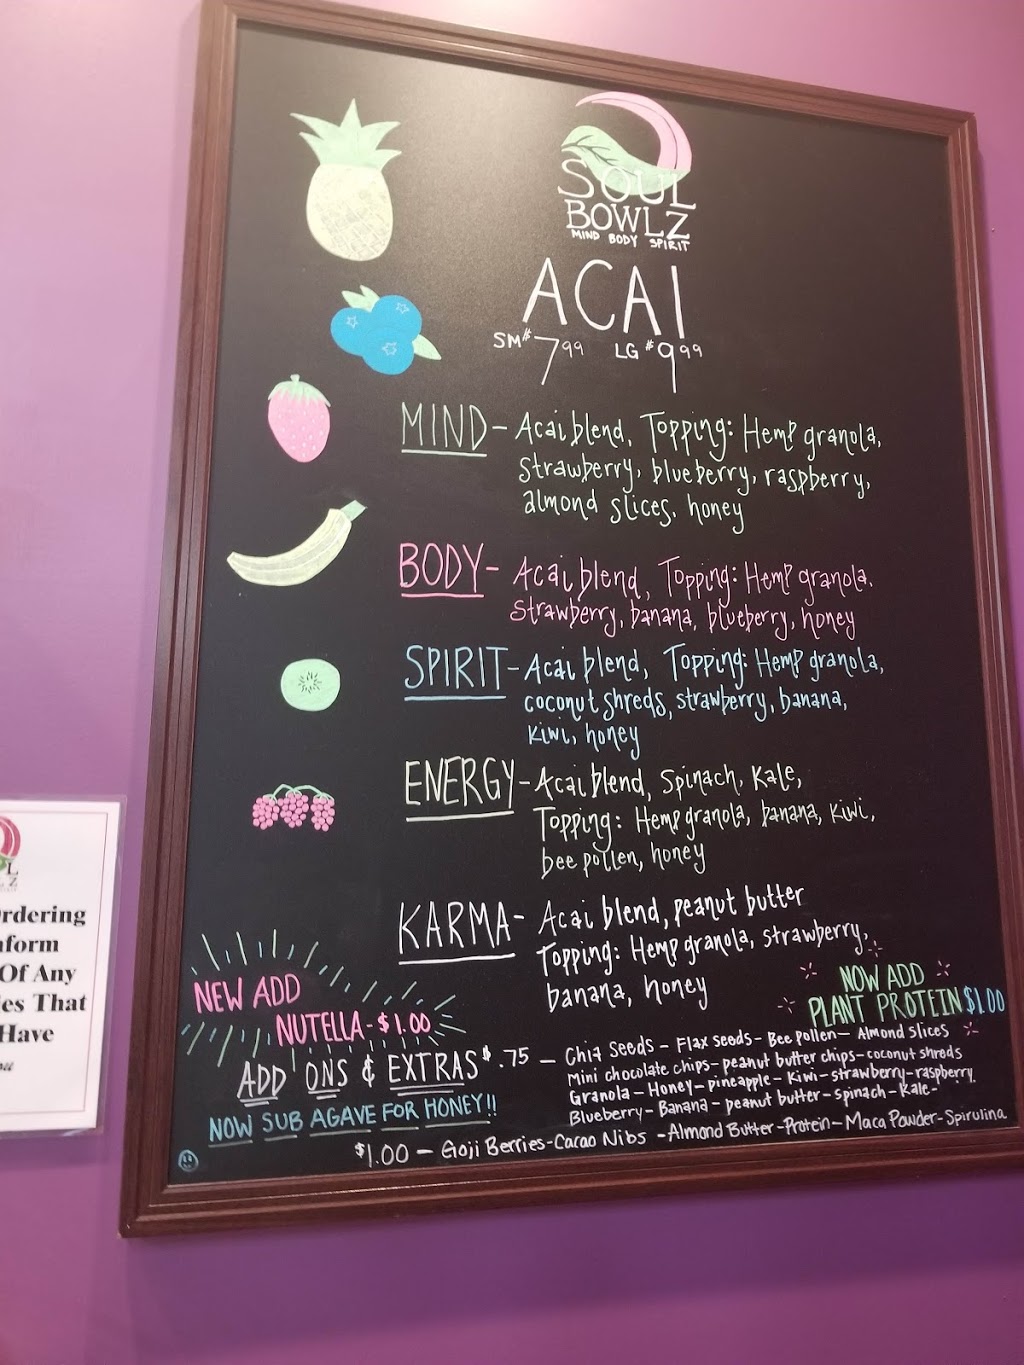 SOUL
BOWLZ
MIND BODY SPIRIT
ACAI
SM $7.99 LG $9.99
MIND - Acai blend, Topping: Hemp granola,
strawberry, blueberry, raspberry,
almond slices, honey
BODY - Acai blend, Topping: Hemp granola.
strawberry, banana, blueberry, honey
SPIRIT - Acai blend, Topping: Hemp granola,
coconut shreds, strawberry, banana,
kiwi, honey
ENERGY - Acai blend, spinach, kale,
Topping: Hemp granola, banana, kiwi,
bee pollen, honey
KARMA - Acai blend, peanut butter
Topping: Hemp granola, strawberry,
banana, honey
NEW ADD
NUTELLA - $1.00
NOW ADD
PLANT PROTEIN $1.00
ADD ONS & EXTRAS $.75 - Chia Seeds - Flax seeds - Bee Pollen - Almond slices
Mini chocolate chips - peanut butter chips - coconut shreds
Granola - Honey - pineapple - Kiwi - strawberry - raspberry
Blueberry - Banana - peanut butter - spinach - Kale -
NOW SUB AGAVE FOR HONEY!!
$1.00 - Goji Berries - Cacao Nibs - Almond Butter - Protein - Maca Powder - Spirulina
L
Z
rdering
form
Of Any
es That
Have